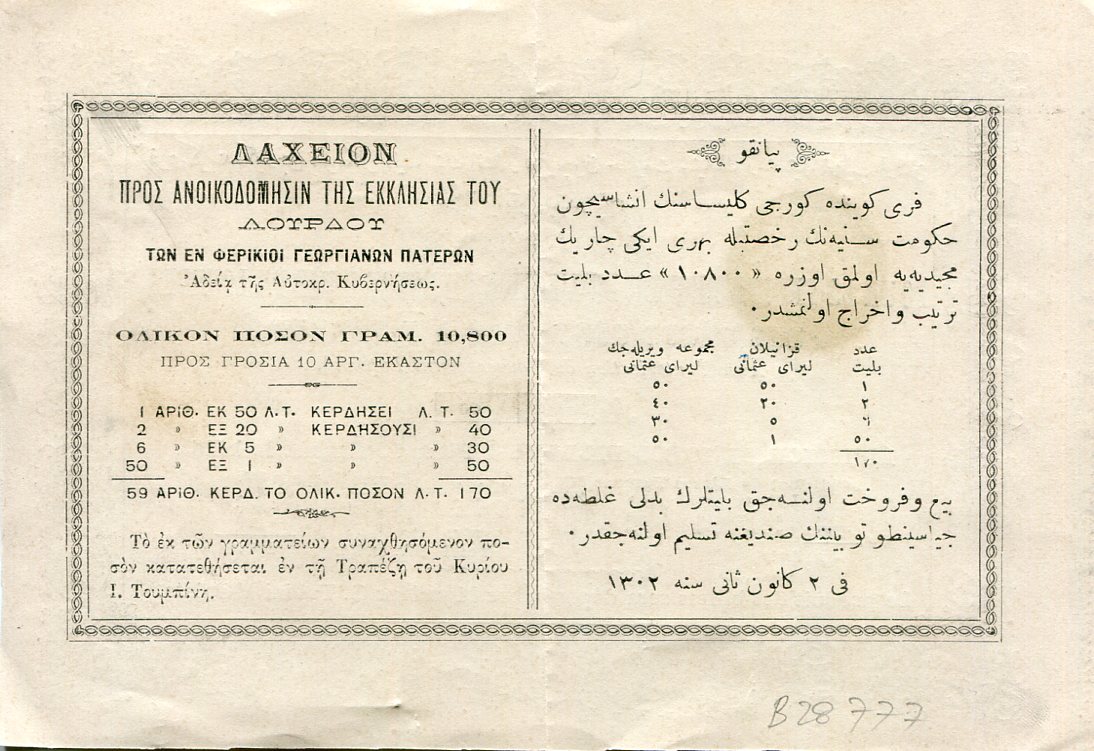 ΛΑΧΕΙΟΝ
ΠΡΟΣ ΑΝΟΙΚΟΔΟΜΗΣΙΝ ΤΗΣ ΕΚΚΛΗΣΙΑΣ ΤΟΥ
ΛΟΥΡΔΟΥ
ΤΩΝ ΕΝ ΦΕΡΙΚΙΟΙ ΓΕΩΡΓΙΑΝΩΝ ΠΑΤΕΡΩΝ
Ἀδείᾳ τῆς Αὐτοκρ. Κυβερνήσεως.
ΟΛΙΚΟΝ ΠΟΣΟΝ ΓΡΑΜ. 10,800
ΠΡΟΣ ΓΡΟΣΙΑ 10 ΑΡΓ. ΕΚΑΣΤΟΝ
1 ΑΡΙΘ. ΕΚ 50 Λ.Τ. ΚΕΡΔΗΣΕΙ Λ. Τ. 50
2 » ΕΞ 20 » ΚΕΡΔΗΣΟΥΣΙ » 40
6 » ΕΚ 5 » » » 30
50 » ΕΞ 1 » » » 50
59 ΑΡΙΘ. ΚΕΡΔ. ΤΟ ΟΛΙΚ. ΠΟΣΟΝ Λ. Τ. 170
Τὸ ἐκ τῶν γραμματείων συναχθησόμενον πο-
σὸν κατατεθήσεται ἐν τῇ Τραπέζῃ τοῦ Κυρίου
Ι. Τουμπίνη.
پيانقو
فرى كوينده كورجى كليساسنك انشاسيچون
حكومت سنيه‌نك رخصتيله بهرى ايكى چاريك
مجيديه‌يه اولمق اوزره «١٠٨٠٠» عدد بليت
ترتيب واخراج اولنمشدر.
عدد قزانيلان مجموعه ويريله‌جك
بليت ليراى عثمانى ليراى عثمانى
١ ٥٠ ٥٠
٢ ٢٠ ٤٠
٦ ٥ ٣٠
٥٠ ١ ٥٠
١٧٠
بيع وفروخت اولنه‌جق بليتلرك بدلى غلطه‌ده
جياسينطو توبيننك صنديغنه تسليم اولنه‌جقدر.
فى ٢ كانون ثانى سنه ١٣٠٢
B28777